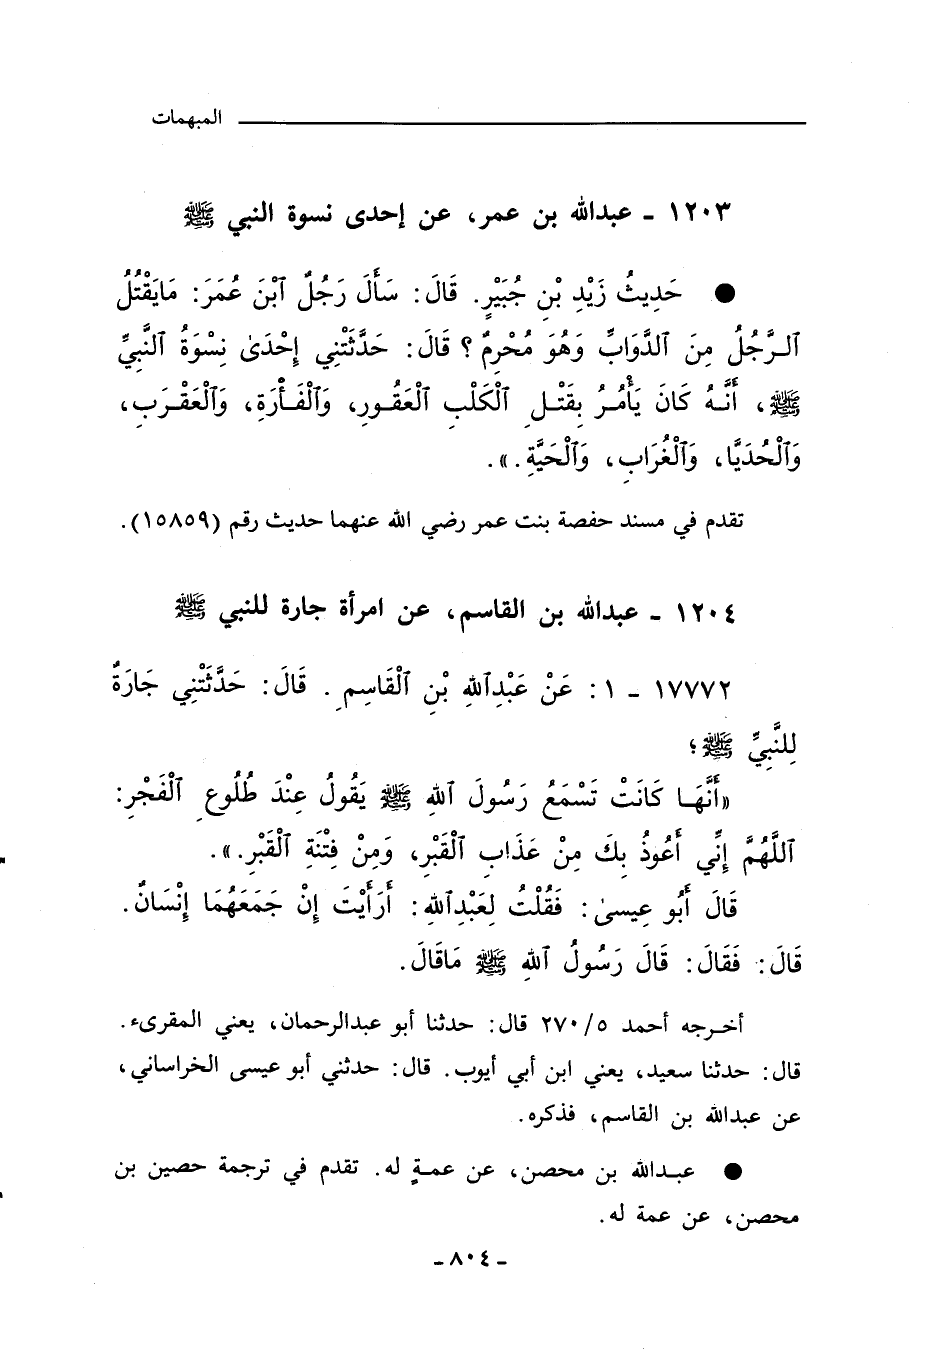 المبهمات
١٢٠٣ - عبدالله بن عمر، عن إحدى نسوة النبي ﷺ
● حَدِيثُ زَيْدِ بْنِ جُبَيْرٍ. قَالَ: سَأَلَ رَجُلٌ ٱبْنَ عُمَرَ: مَايَقْتُلُ
ٱلرَّجُلُ مِنَ ٱلدَّوَابِّ وَهُوَ مُحْرِمٌ؟ قَالَ: حَدَّثَتْنِي إِحْدَىٰ نِسْوَةُ ٱلنَّبِيِّ
ﷺ، أَنَّهُ كَانَ يَأْمُرُ بِقَتْلِ ٱلْكَلْبِ ٱلْعَقُورِ، وَٱلْفَأْرَةِ، وَٱلْعَقْرَبِ،
وَٱلْحُدَيَّا، وَٱلْغُرَابِ، وَٱلْحَيَّةِ.».
تقدم في مسند حفصة بنت عمر رضي الله عنهما حديث رقم (١٥٨٥٩).
١٢٠٤ - عبدالله بن القاسم، عن امرأة جارة للنبي ﷺ
١٧٧٧٢ - ١: عَنْ عَبْدِٱللهِ بْنِ ٱلْقَاسِمِ. قَالَ: حَدَّثَتْنِي جَارَةٌ
لِلنَّبِيِّ ﷺ؛
«أَنَّهَا كَانَتْ تَسْمَعُ رَسُولَ ٱللهِ ﷺ يَقُولُ عِنْدَ طُلُوعِ ٱلْفَجْرِ:
ٱللَّهُمَّ إِنِّي أَعُوذُ بِكَ مِنْ عَذَابِ ٱلْقَبْرِ، وَمِنْ فِتْنَةِ ٱلْقَبْرِ.».
قَالَ أَبُو عِيسىٰ: فَقُلْتُ لِعَبْدِٱللهِ: أَرَأَيْتَ إِنْ جَمَعَهُمَا إِنْسَانٌ.
قَالَ: فَقَالَ: قَالَ رَسُولُ ٱللهِ ﷺ مَاقَالَ.
أخرجه أحمد ٢٧٠/٥ قال: حدثنا أبو عبدالرحمان، يعني المقرىء.
قال: حدثنا سعيد، يعني ابن أبي أيوب. قال: حدثني أبو عيسى الخراساني،
عن عبدالله بن القاسم، فذكره.
● عبدالله بن محصن، عن عمةٍ له. تقدم في ترجمة حصين بن
محصن، عن عمة له.
- ٨٠٤ -